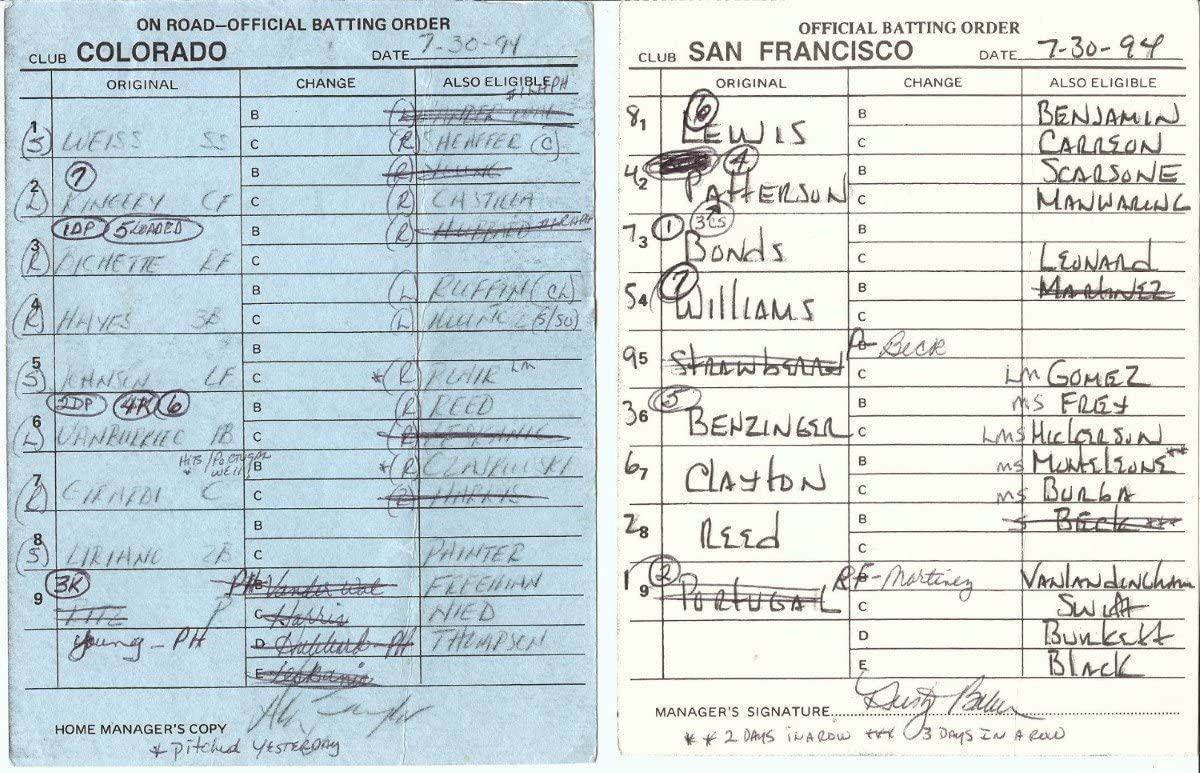 ON ROAD—OFFICIAL BATTING ORDER
CLUB COLORADO DATE 7-30-94
ORIGINAL CHANGE ALSO ELIGIBLE
B
1 (S) WEISS SS C (R) SHEAFFER (C)
7 B
2 (L) KINGERY CF C (R) CASTILLA
1DP 5 LOADED (R)
3 (R) BICHETTE RF C
B (L) RUFFIN (CL)
4 (R) HAYES 3B C (L)
B
5 (S) JOHNSON LF C *(R) BLAIR LM
2DP 4K 6 B (R) REED
6 (L) VANDERWAL C
HITS PORTUGAL WELL B *(R) CZAJKOWSKI
7 (R) GIRARDI C C HARRIS
B
8 (S) LIRIANO 2B C PAINTER
3K PH B Vander Wal FREEMAN
9 P C Harris NIED
young - PH D Hubbard - PH THOMPSON
E
HOME MANAGER'S COPY
* Pitched YESTERDAY
OFFICIAL BATTING ORDER
CLUB SAN FRANCISCO DATE 7-30-94
ORIGINAL CHANGE ALSO ELIGIBLE
6 B BENJAMIN
8 1 LEWIS C CARREON
4 B SCARSONE
4 2 PATTERSON C MANWARING
1 3CS B
7 3 BONDS C LEONARD
7 B MARTINEZ
5 4 WILLIAMS C
P- BECK
9 5 STRAWBERRY C LM GOMEZ
5 B MS FREY
3 6 BENZINGER C LMS HICKERSON
B MS MONTELEONE **
6 7 CLAYTON C MS BURBA
B S BECK ***
2 8 REED C
2 RF - Martinez VANLANDINGHAM
1 9 PORTUGAL C SWIFT
D BURKETT
E BLACK
MANAGER'S SIGNATURE Dusty Baker
** 2 DAYS IN A ROW *** 3 DAYS IN A ROW